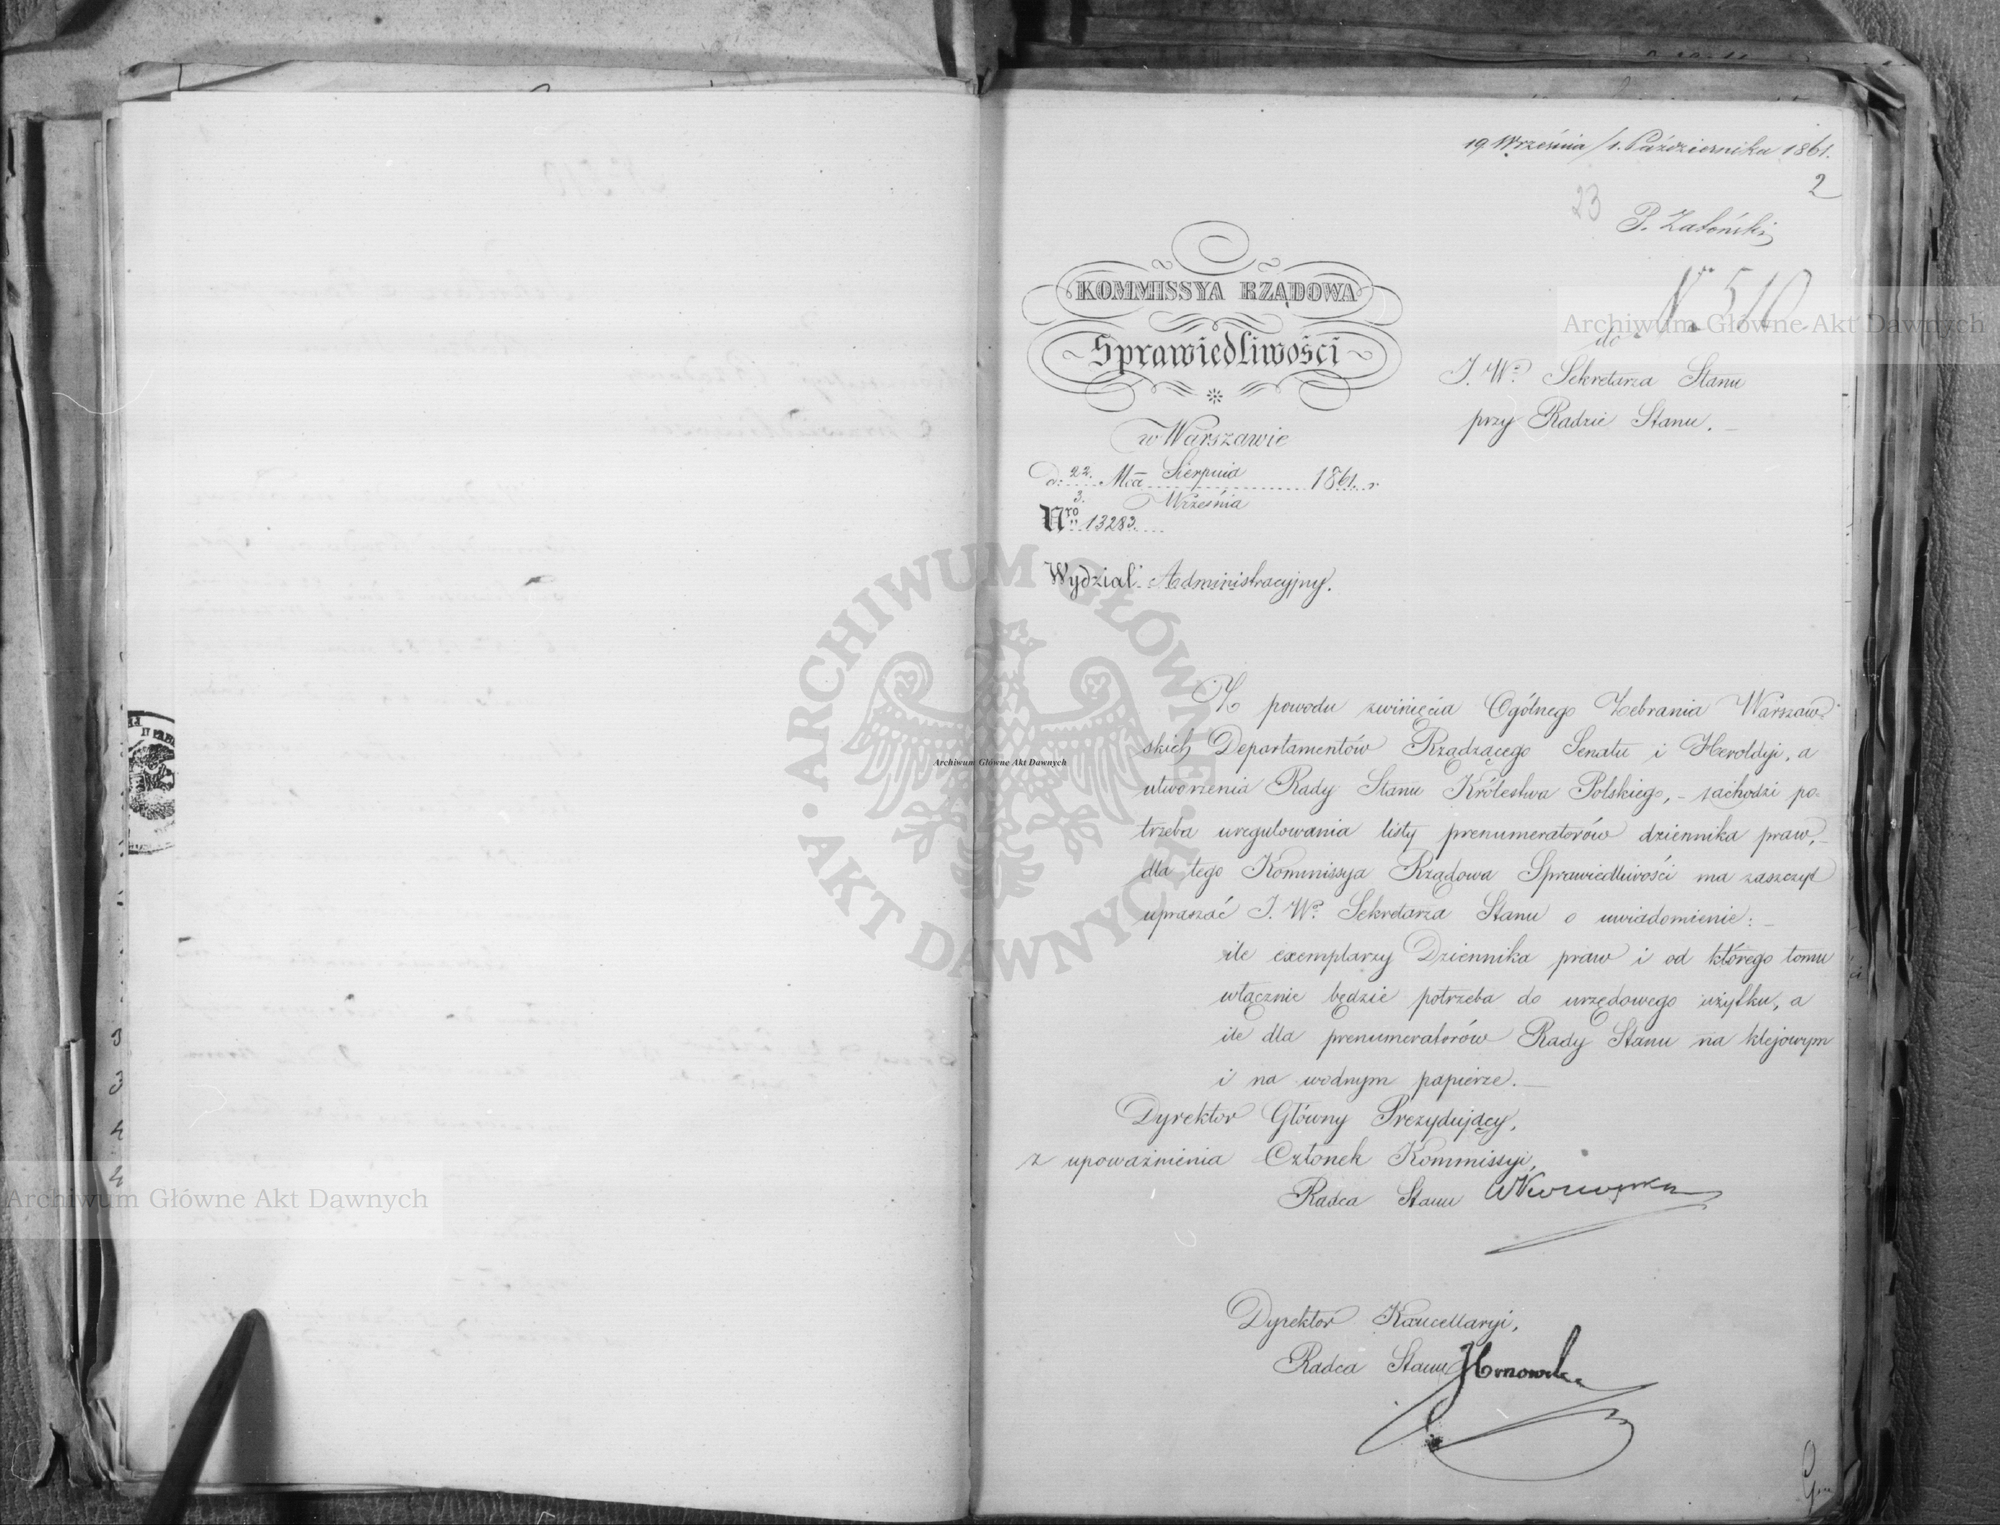 19 Września / 1. Października 1861.
2
23
P. Zatoński
N. 510
do
J. W. Sekretarza Stanu
przy Radzie Stanu.
KOMMISSYA RZĄDOWA
Sprawiedliwości
w Warszawie
d: 22. Mca Sierpnia 1861. r.
3. Września
Nro 13283.
Wydział Administracyjny.
Z powodu zwinięcia Ogólnego Zebrania Warszaw-
skich Departamentów Rządzącego Senatu i Heroldyi, a
utworzenia Rady Stanu Królestwa Polskiego, - zachodzi po-
trzeba uregulowania listy prenumeratorów dziennika praw, -
dla tego Kommissya Rządowa Sprawiedliwości ma zaszczyt
upraszać J. W. Sekretarza Stanu o uwiadomienie: -
ile exemplarzy Dziennika praw i od którego tomu
włącznie będzie potrzeba do urzędowego użytku, a
ile dla prenumeratorów Rady Stanu na klejowym
i na wodnym papierze. -
Dyrektor Główny Prezydujący,
z upoważnienia Członek Kommissyi,
Radca Stanu
Dyrektor Kancellaryi,
Radca Stanu
Archiwum Główne Akt Dawnych
Archiwum Główne Akt Dawnych
Archiwum Główne Akt Dawnych
ARCHIWUM GŁÓWNE AKT DAWNYCH